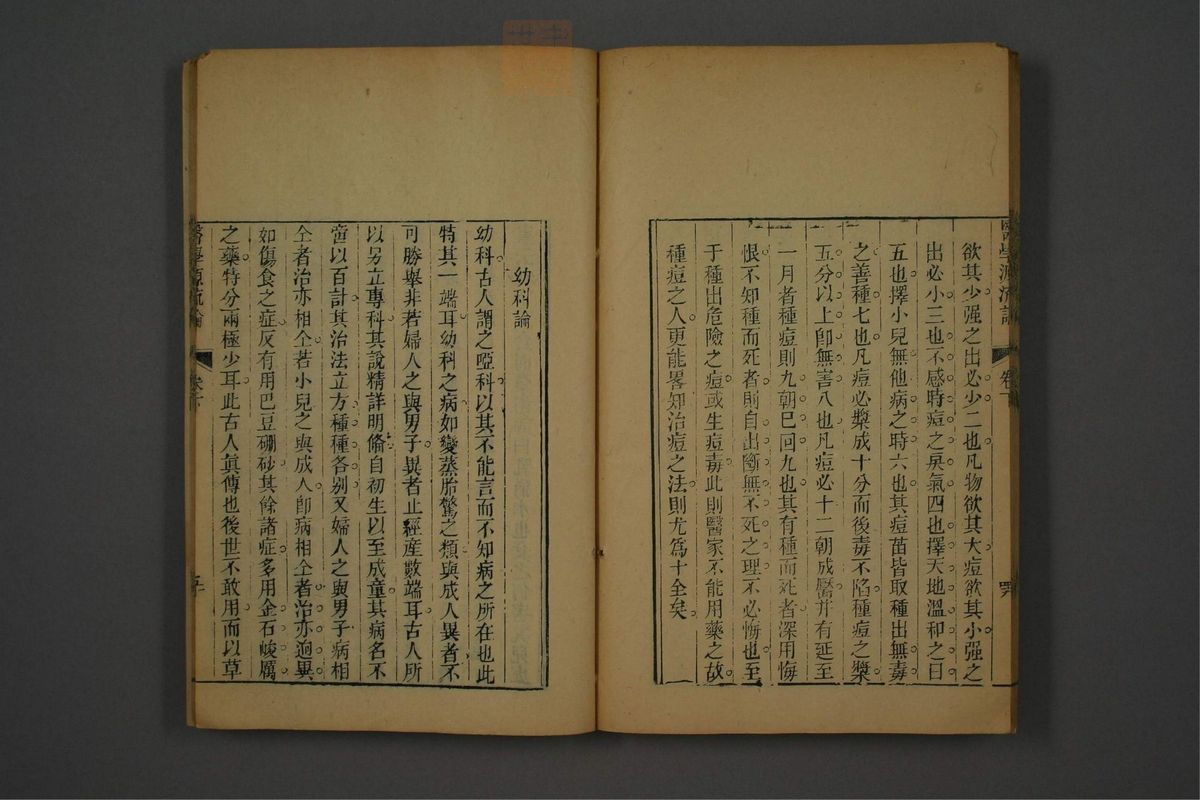 醫學源流論 卷下
欲其少强之出必少二也凡物欲其大痘欲其小强之
出必小三也不感時痘之戾氣四也擇天地溫和之日
五也擇小兒無他病之時六也其痘苗皆取種出無毒
之善種七也凡痘必漿成十分而後毒不陷種痘之漿
五分以上卽無害八也凡痘必十二朝成靨并有延至
一月者種痘則九朝已回九也其有種而死者深用悔
恨不知種而死者則自出斷無不死之理不必悔也至
于種出危險之痘或生痘毒此則醫家不能用藥之故
種痘之人更能畧知治痘之法則尤爲十全矣
幼科論
幼科古人謂之啞科以其不能言而不知病之所在也此
特其一端耳幼科之病如變蒸胎驚之類與成人異者不
可勝舉非若婦人之與男子異者止經産數端耳古人所
以另立專科其說精詳明僃自初生以至成童其病名不
啻以百計其治法立方種種各别又婦人之與男子病相
仝者治亦相仝若小兒之與成人卽病相仝者治亦迥異
如傷食之症反有用巴豆硼砂其餘諸症多用金石峻厲
之藥特分兩極少耳此古人眞傳也後世不敢用而以草
醫學源流論 卷下